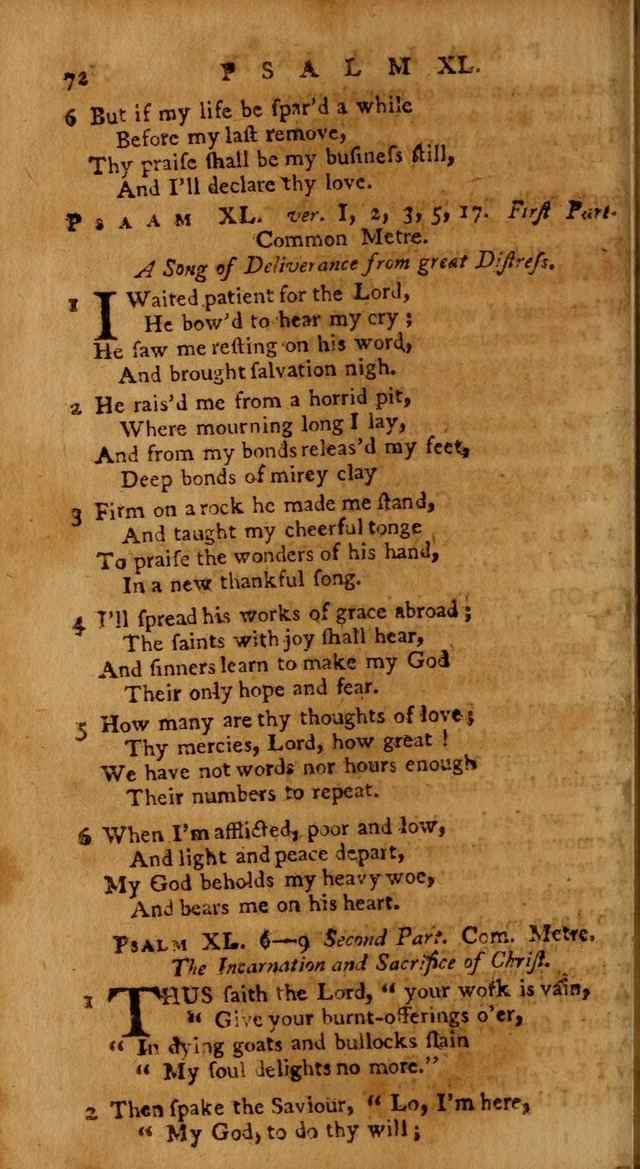 72 PSALM XL.
6 But if my life be ſpar'd a while
Before my laſt remove,
Thy praiſe ſhall be my buſineſs ſtill,
And I'll declare thy love.
PSAAM XL. ver. 1, 2, 3, 5, 17. Firſt Part.
Common Metre.
A Song of Deliverance from great Diſtreſs.
1 I Waited patient for the Lord,
He bow'd to hear my cry;
He ſaw me reſting on his word,
And brought ſalvation nigh.
2 He rais'd me from a horrid pit,
Where mourning long I lay,
And from my bonds releas'd my feet,
Deep bonds of mirey clay
3 Firm on a rock he made me ſtand,
And taught my cheerful tonge
To praiſe the wonders of his hand,
In a new thankful ſong.
4 I'll ſpread his works of grace abroad;
The ſaints with joy ſhall hear,
And ſinners learn to make my God
Their only hope and fear.
5 How many are thy thoughts of love;
Thy mercies, Lord, how great!
We have not words nor hours enough
Their numbers to repeat.
6 When I'm afflicted, poor and low,
And light and peace depart,
My God beholds my heavy woe,
And bears me on his heart.
PSALM XL. 6—9 Second Part. Com. Metre.
The Incarnation and Sacrifice of Chriſt.
1 THUS ſaith the Lord, “ your work is vain,
“ Give your burnt-offerings o'er,
“ In dying goats and bullocks ſtain
“ My ſoul delights no more.”
2 Then ſpake the Saviour, “ Lo, I'm here,
“ My God, to do thy will;